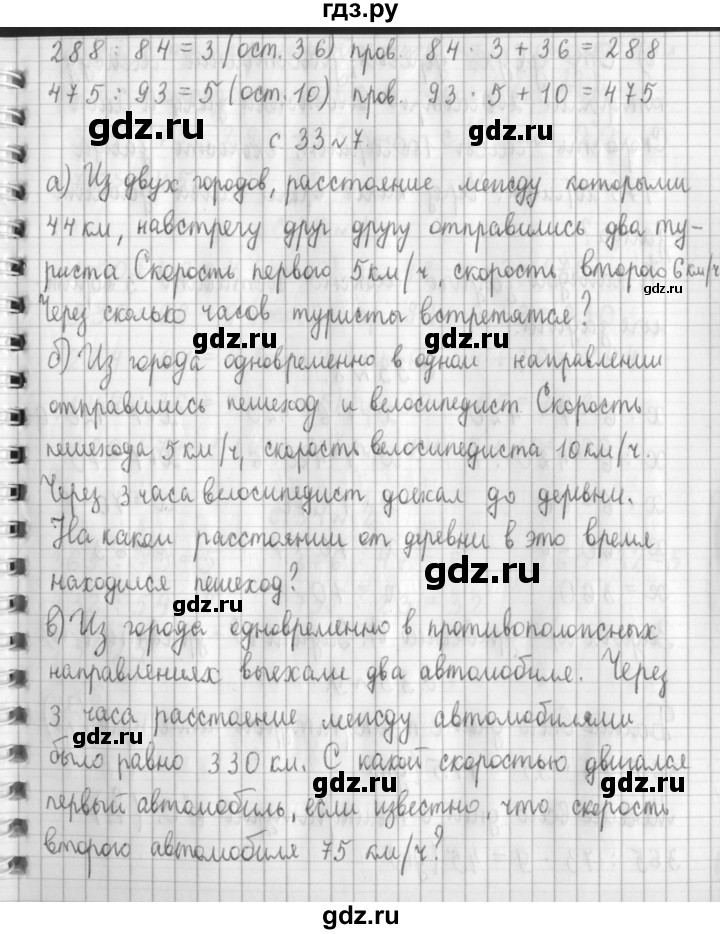 гдз.ру
288 : 84 = 3 (ост. 36) пров. 84 · 3 + 36 = 288
475 : 93 = 5 (ост. 10) пров. 93 · 5 + 10 = 475
gdz.ru
gdz.ru
с 33 №7
а) Из двух городов, расстояние между которыми
44 км, навстречу друг другу отправились два ту-
риста. Скорость первого 5 км/ч, скорость второго 6 км/ч
gdz.ru
Через сколько часов туристы встретятся?
gdz.ru
gdz.ru
б) Из города одновременно в одном направлении
отправились пешеход и велосипедист. Скорость
пешехода 5 км/ч, скорость велосипедиста 10 км/ч.
Через 3 часа велосипедист доехал до деревни.
На каком расстоянии от деревни в это время
gdz.ru
находился пешеход?
gdz.ru
в) Из города одновременно в противоположных
направлениях выехали два автомобиля. Через
3 часа расстояние между автомобилями
gdz.ru
было равно 330 км. С какой скоростью двигался
gdz.ru
gdz.ru
первый автомобиль, если известно, что скорость
второго автомобиля 75 км/ч?
gdz.ru